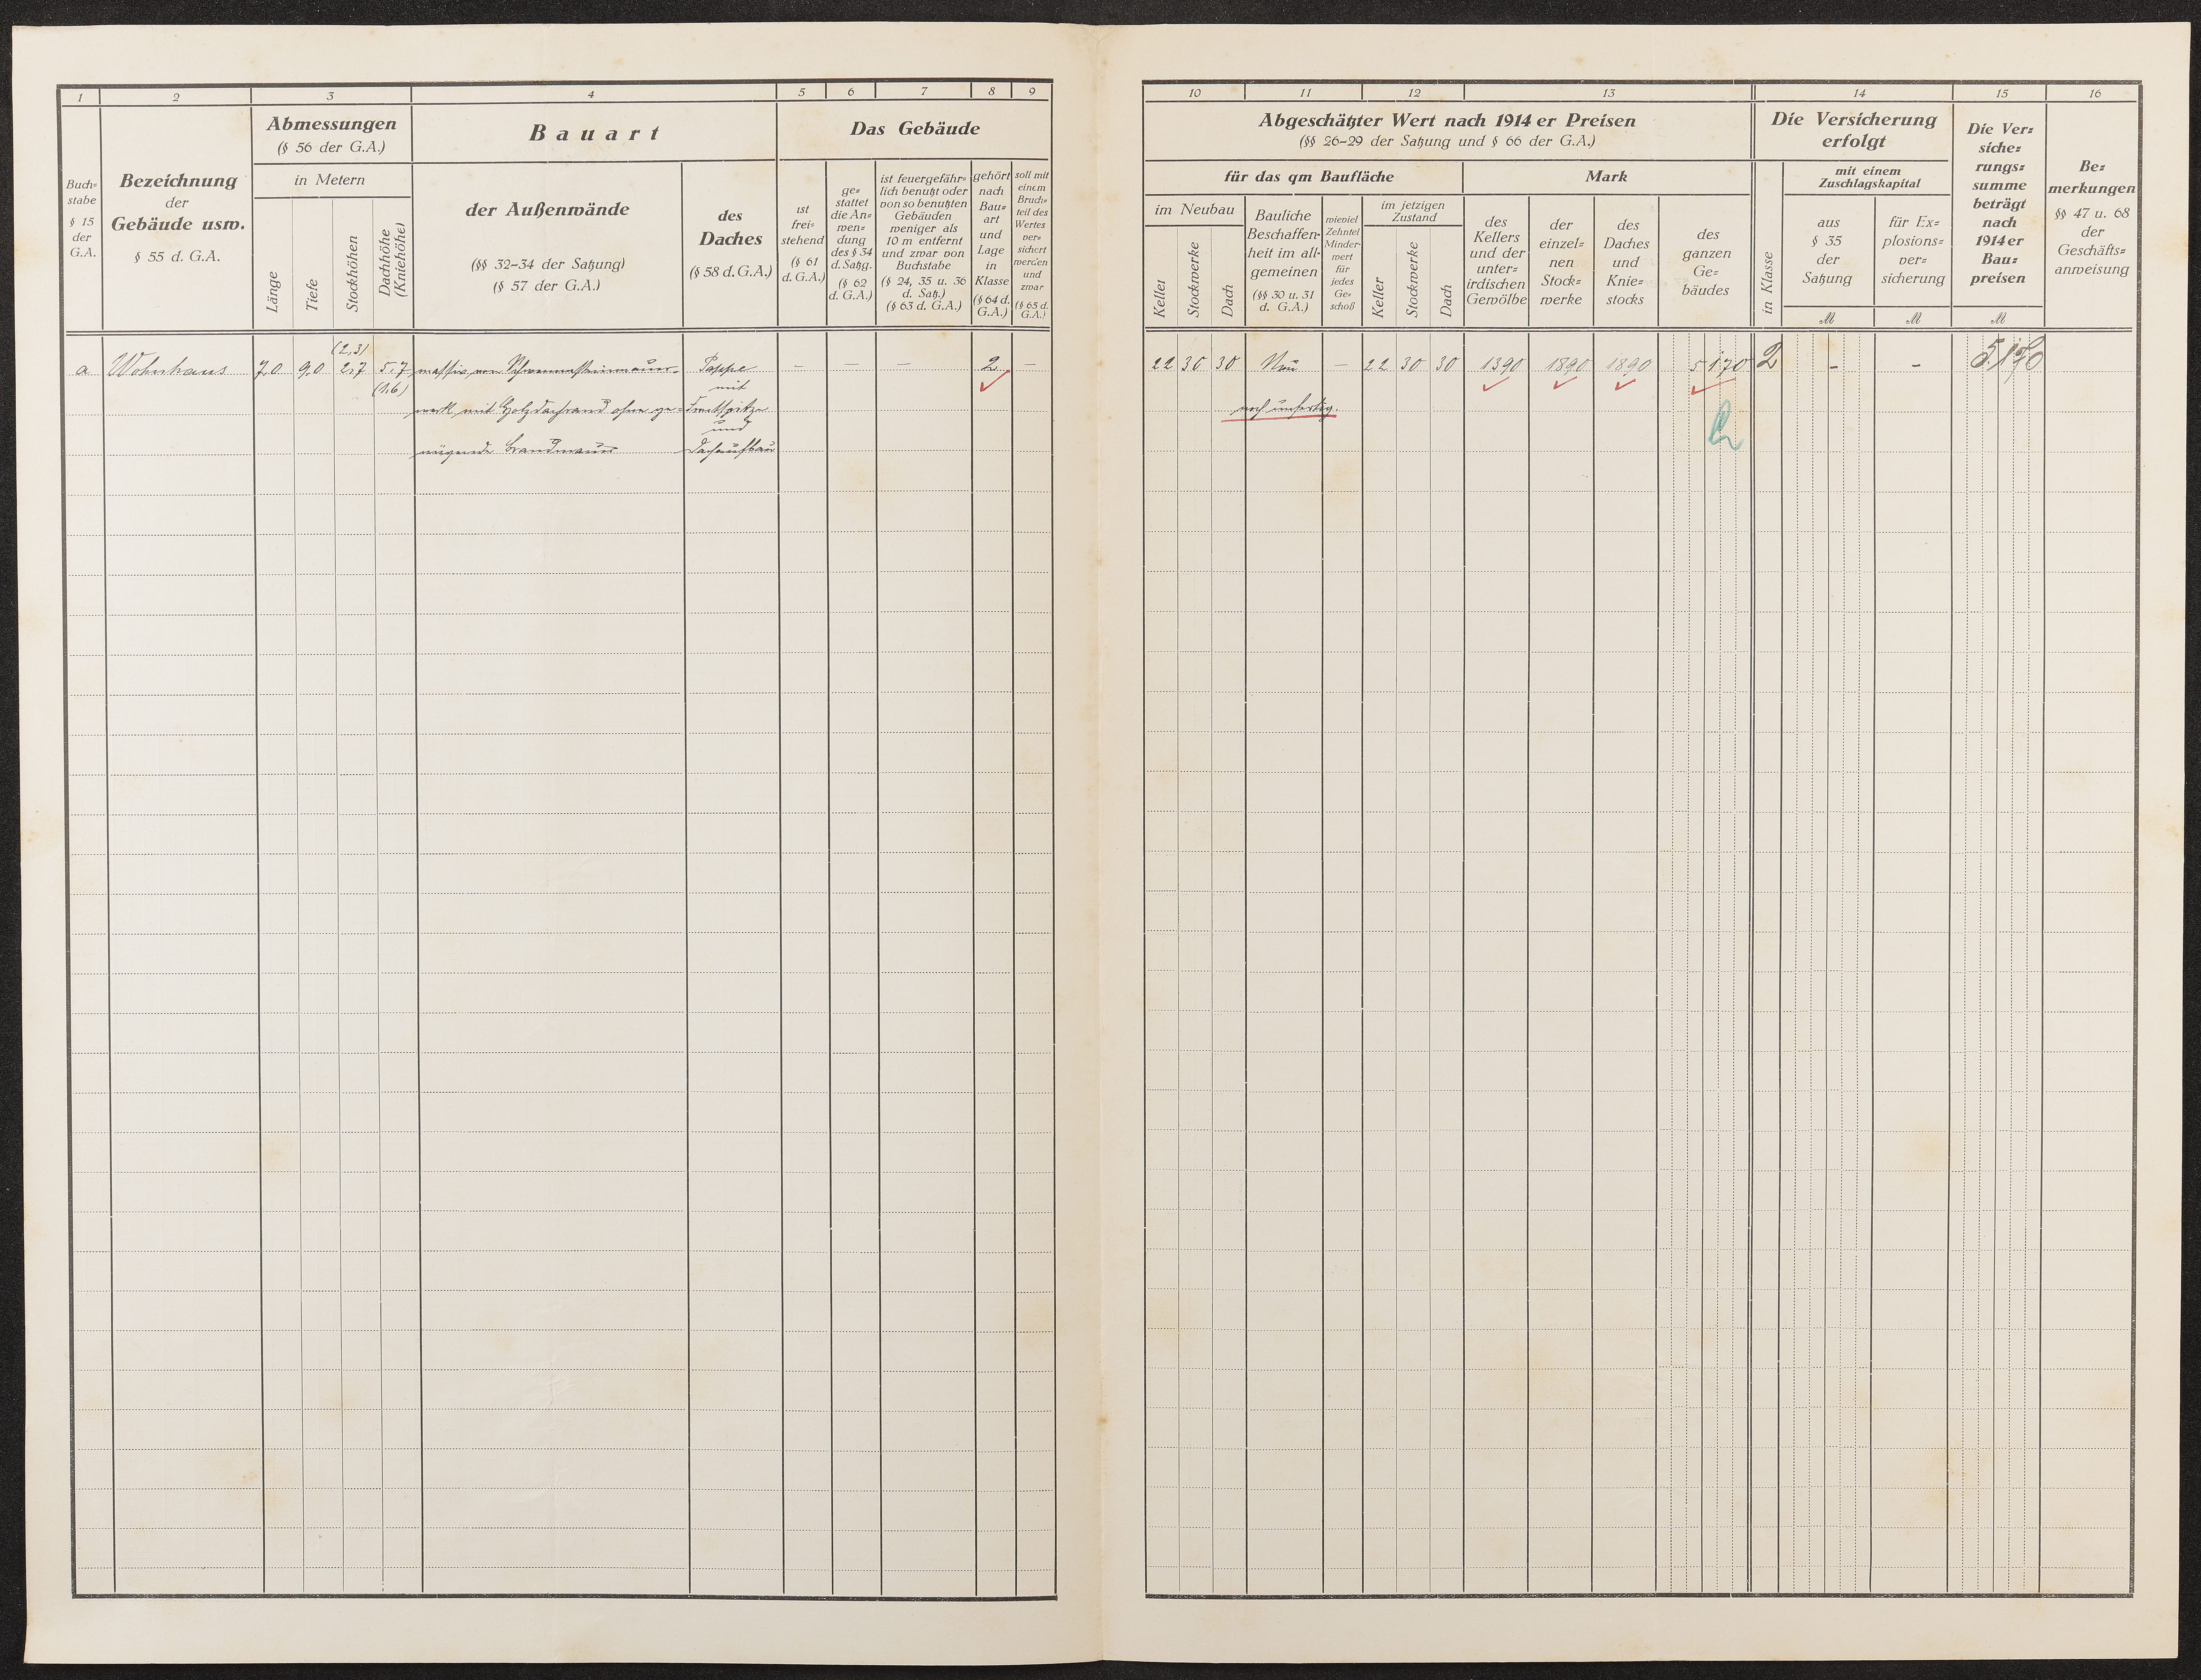 1 2 3 4 5 6 7 8 9
Abmessungen
(§ 56 der G.A.)
Bauart
Das Gebäude
Buch=
stabe
§ 15
der
G.A.
Bezeichnung
der
Gebäude usw.
§ 55 d. G.A.
in Metern
Länge
Tiefe
Stockhöhen
Dachhöhe
(Kniehöhe)
der Außenwände
(§§ 32–34 der Satzung)
(§ 57 der G.A.)
des
Daches
(§ 58 d. G.A.)
ist
frei=
stehend
(§ 61
d. G.A.)
ge=
stattet
die An=
wen=
dung
des § 34
d. Satzg.
(§ 62
d. G.A.)
ist feuergefähr=
lich benutzt oder
von so benutzten
Gebäuden
weniger als
10 m entfernt
und zwar von
Buchstabe
(§ 24, 35 u. 36
d. Satz.)
(§ 63 d. G.A.)
gehört
nach
Bau=
art
und
Lage
in
Klasse
(§ 64 d.
G.A.)
soll mit
einem
Bruch=
teil des
Wertes
ver=
sichert
werden
und
zwar
(§ 65 d.
G.A.)
(2,3)
a Wohnhaus 7,0 9,0 2,7 5,7 massiv von Schwemmsteinmauer= Pappe – – – 2 –
(1,6) mit
werk mit Holzdachrand ohne ge= Frontspitze
und
nügende Brandmauer Dachaufbau
10 11 12 13 14 15 16
Abgeschätzter Wert nach 1914 er Preisen
(§§ 26–29 der Satzung und § 66 der G.A.)
für das qm Baufläche
Mark
im Neubau
Keller
Stockwerke
Dach
Bauliche
Beschaffen=
heit im all=
gemeinen
(§§ 30 u. 31
d. G.A.)
wieviel
Zehntel
Minder=
wert
für
jedes
Ge=
schoß
im jetzigen
Zustand
Keller
Stockwerke
Dach
des
Kellers
und der
unter=
irdischen
Gewölbe
der
einzel=
nen
Stock=
werke
des
Daches
und
Knie=
stocks
des
ganzen
Ge=
bäudes
Die Versicherung
erfolgt
in Klasse
mit einem
Zuschlagskapital
aus
§ 35
der
Satzung
M
für Ex=
plosions=
ver=
sicherung
M
Die Ver=
siche=
rungs=
summe
beträgt
nach
1914 er
Bau=
preisen
M
Be=
merkungen
§§ 47 u. 68
der
Geschäfts=
anweisung
22 30 30 Neu – 22 30 30 1390 1890 1890 5170 2 – – 5170
noch unfertig.